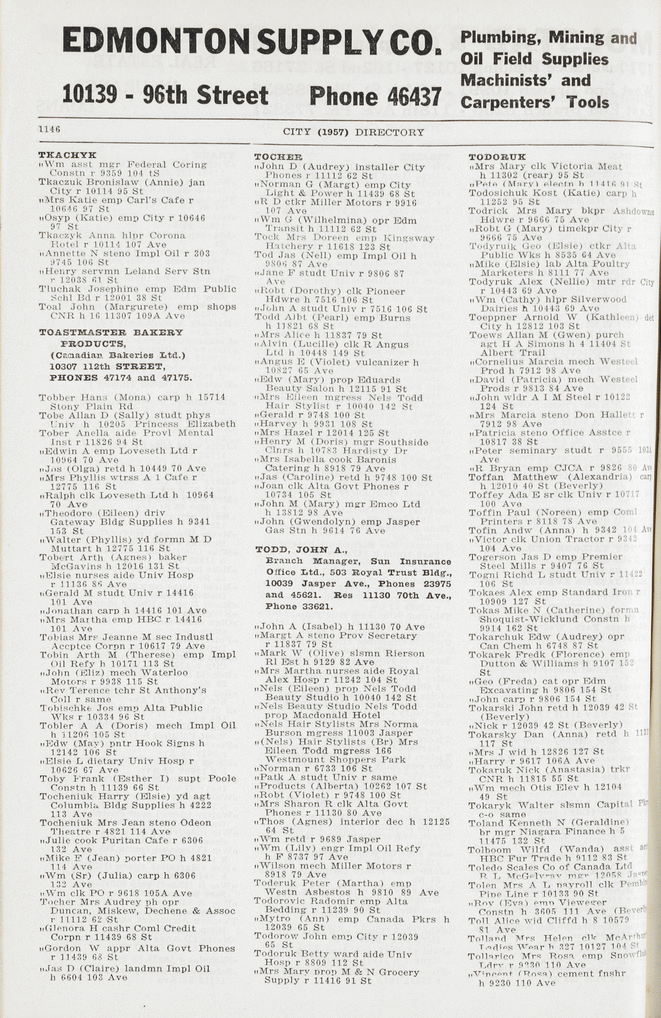 EDMONTON SUPPLY CO.
10139 - 96th Street Phone 46437
Plumbing, Mining and
Oil Field Supplies
Machinists' and
Carpenters' Tools
1146
CITY (1957) DIRECTORY
TKACHYK
„Wm asst mgr Federal Coring
Constn r 9359 104 tS
Tkaczuk Bronislaw (Annie) jan
City r 10114 95 St
„Mrs Katie emp Carl's Cafe r
10646 97 St
„Osyp (Katie) emp City r 10646
97 St
Tkaczyk Anna hlpr Corona
Hotel r 10114 107 Ave
„Annette N steno Impl Oil r 303
9745 106 St
„Henry servmn Leland Serv Stn
r 12038 61 St
Tluchak Josephine emp Edm Public
Schl Bd r 12001 38 St
Toal John (Margurete) emp shops
CNR h 16 11307 109A Ave
TOASTMASTER BAKERY
PRODUCTS,
(Canadian Bakeries Ltd.)
10307 112th STREET,
PHONES 47174 and 47175.
Tobber Hans (Mona) carp h 15714
Stony Plain Rd
Tobe Allan D (Sally) studt phys
Univ h 10205 Princess Elizabeth
Tober Anella aide Provl Mental
Inst r 11826 94 St
„Edwin A emp Loveseth Ltd r
10964 70 Ave
„Jos (Olga) retd h 10449 70 Ave
„Mrs Phyllis wtrss A 1 Cafe r
12775 116 St
„Ralph clk Loveseth Ltd h 10964
70 Ave
„Theodore (Eileen) driv
Gateway Bldg Supplies h 9341
153 St
„Walter (Phyllis) yd formn M D
Muttart h 12775 116 St
Tobert Arth (Agnes) baker
McGavins h 12016 131 St
„Elsie nurses aide Univ Hosp
r 11136 85 Ave
„Gerald M studt Univ r 14416
101 Ave
„Jonathan carp h 14416 101 Ave
„Mrs Martha emp HBC r 14416
101 Ave
Tobias Mrs Jeanne M sec Industl
Accptce Corpn r 10617 79 Ave
Tobin Arth M (Therese) emp Impl
Oil Refy h 10171 113 St
„John (Eliz) mech Waterloo
Motors r 9938 115 St
„Rev Terence tchr St Anthony's
Coll r same
Tobischke Jos emp Alta Public
Wks r 10334 96 St
Tobler A A (Doris) mech Impl Oil
h 11206 105 St
„Edw (May) pntr Hook Signs h
12142 106 St
„Elsie L dietary Univ Hosp r
10626 67 Ave
Toby Frank (Esther I) supt Poole
Constn h 11139 66 St
Tocheniuk Harry (Elsie) yd agt
Columbia Bldg Supplies h 4222
113 Ave
Tocheniuk Mrs Jean steno Odeon
Theatre r 4821 114 Ave
„Julie cook Puritan Cafe r 6306
132 Ave
„Mike F (Jean) porter PO h 4821
114 Ave
„Wm (Sr) (Julia) carp h 6306
132 Ave
„Wm clk PO r 9618 105A Ave
Tocher Mrs Audrey ph opr
Duncan, Miskew, Dechene & Assoc
r 11112 62 St
„Glenora H cashr Coml Credit
Corpn r 11439 68 St
„Gordon W appr Alta Govt Phones
r 11439 68 St
„Jas D (Claire) landmn Impl Oil
h 6604 103 Ave
TOCHER
„John D (Audrey) installer City
Phones r 11112 62 St
„Norman G (Margt) emp City
Light & Power h 11439 68 St
„R D ctkr Miller Motors r 9916
107 Ave
„Wm G (Wilhelmina) opr Edm
Transit h 11112 62 St
Tock Mrs Doreen emp Kingsway
Hatchery r 11618 123 St
Tod Jas (Nell) emp Impl Oil h
9806 87 Ave
„Jane F studt Univ r 9806 87
Ave
„Robt (Dorothy) clk Pioneer
Hdwre h 7516 106 St
„John A studt Univ r 7516 106 St
Todd Albt (Pearl) emp Burns
h 11821 68 St
„Mrs Alice h 11837 79 St
„Alvin (Lucille) clk R Angus
Ltd h 10448 149 St
„Angus E (Violet) vulcanizer h
10827 65 Ave
„Edw (Mary) prop Eduards
Beauty Salon h 12115 91 St
„Mrs Eileen mgress Nels Todd
Hair Stylist r 10040 142 St
„Gerald r 9748 100 St
„Harvey h 9931 108 St
„Mrs Hazel r 12014 125 St
„Henry M (Doris) mgr Southside
Clnrs h 10783 Hardisty Dr
„Mrs Isabella cook Baronis
Catering h 8918 79 Ave
„Jas (Caroline) retd h 9748 100 St
„Joan clk Alta Govt Phones r
10734 105 St
„John M (Mary) mgr Emco Ltd
h 13812 98 Ave
„John (Gwendolyn) emp Jasper
Gas Stn h 9614 76 Ave
TODD, JOHN A.,
Branch Manager, Sun Insurance
Office Ltd., 503 Royal Trust Bldg.,
10039 Jasper Ave., Phones 23975
and 45621. Res 11130 70th Ave.,
Phone 33621.
„John A (Isabel) h 11130 70 Ave
„Margt A steno Prov Secretary
r 11837 79 St
„Mark W (Olive) slsmn Rierson
Rl Est h 9129 82 Ave
„Mrs Martha nurses aide Royal
Alex Hosp r 11242 104 St
„Nels (Eileen) prop Nels Todd
Beauty Studio h 10040 142 St
„Nels Beauty Studio Nels Todd
prop Macdonald Hotel
„Nels Hair Stylists Mrs Norma
Burson mgress 11003 Jasper
„(Nels) Hair Stylists (Br) Mrs
Eileen Todd mgress 166
Westmount Shoppers Park
„Norman r 6733 106 St
„Patk A studt Univ r same
„Products (Alberta) 10262 107 St
„Robt (Violet) r 9748 100 St
„Mrs Sharon R clk Alta Govt
Phones r 11130 80 Ave
„Thos (Agnes) interior dec h 12125
64 St
„Wm retd r 9689 Jasper
„Wm (Lily) engr Impl Oil Refy
h F 8737 97 Ave
„Wilson mech Miller Motors r
8918 79 Ave
Toderuk Peter (Martha) emp
Westn Asbestos h 9810 89 Ave
Todorovic Radomir emp Alta
Bedding r 11239 90 St
„Mytro (Ann) emp Canada Pkrs h
12039 65 St
Todorow John emp City r 12039
65 St
Todoruk Betty ward aide Univ
Hosp r 8809 112 St
„Mrs Mary prop M & N Grocery
Supply r 11416 91 St
TODORUK
„Mrs Mary clk Victoria Meat
h 11302 (rear) 95 St
„Pete (Mary) electn h 11416 91 St
Todosichuk Kost (Katie) carp h
11252 95 St
Todrick Mrs Mary bkpr Ashdowns
Hdwre r 9666 75 Ave
„Robt G (Mary) timekpr City r
9666 75 Ave
Todyruig Geo (Elsie) ctkr Alta
Public Wks h 8535 64 Ave
„Mike (Elsie) lab Alta Poultry
Marketers h 8111 77 Ave
Todyruk Alex (Nellie) mtr rdr City
r 10443 69 Ave
„Wm (Cathy) hlpr Silverwood
Dairies h 10443 69 Ave
Toeppner Arnold W (Kathleen) det
City h 12812 103 St
Toews Allan M (Gwen) purch
agt H A Simons h 4 11404 St
Albert Trail
„Cornelius Marcia mech Westeel
Prod h 7912 98 Ave
„David (Patricia) mech Westeel
Prods r 9813 84 Ave
„John wldr A I M Steel r 10122
124 St
„Mrs Marcia steno Don Hallett r
7912 98 Ave
„Patricia steno Office Asstce r
10817 38 St
„Peter seminary studt r 9555
Ave
„R Bryan emp CJCA r 9826 80 Av
Toffan Matthew (Alexandria) carp
h 12010 40 St (Beverly)
Toffey Ada E sr clk Univ r 10717
100 Ave
Toffin Paul (Noreen) emp Coml
Printers r 8118 78 Ave
Tofin Andw (Anna) h 9342 104 Av
„Victor clk Union Tractor r 9342
104 Ave
Togerson Jas D emp Premier
Steel Mills r 9407 76 St
Togni Richd L studt Univ r 11422
106 St
Tokaes Alex emp Standard Iron r
10909 127 St
Tokas Mike N (Catherine) formn
Shoquist-Wicklund Constn h
9914 162 St
Tokarchuk Edw (Audrey) opr
Can Chem h 6748 87 St
Tokarek Fredk (Florence) emp
Dutton & Williams h 9107 152
St
„Geo (Freda) cat opr Edm
Excavating h 9806 154 St
„John carp r 9806 154 St
Tokarski John retd h 12039 42 St
(Beverly)
„Nick r 12039 42 St (Beverly)
Tokarsky Dan (Anna) retd h
117 St
„Mrs J wid h 12826 127 St
„Harry r 9617 106A Ave
Tokaruk Nick (Anastasia) trkr
CNR h 11815 55 St
„Wm mech Otis Elev h 12104
49 St
Tokaryk Walter slsmn Capital
c-o same
Toland Kenneth N (Geraldine)
br mgr Niagara Finance h 5
11475 132 St
Tolboom Wilfd (Wanda) asst
HBC Fur Trade h 9112 83 St
Toledo Scales Co of Canada Ltd
R L McGelvray mgr 12058 Jasper
Tolen Mrs A L payroll clk Pembina
Pine Line r 10133 90 St
„Roy (Eva) emp Vieweger
Constn h 3605 111 Ave (Beverly
Toll Alice wid Cliffd h 8 10579
81 Ave
Tolland Mrs Helen clk McArthur
Ladies Wear h 327 10127 104 St
Tollarico Mrs Rosa emp Snowflake
Ldry r 9230 110 Ave
„Vincent (Rosa) cement fnshr
h 9230 110 Ave